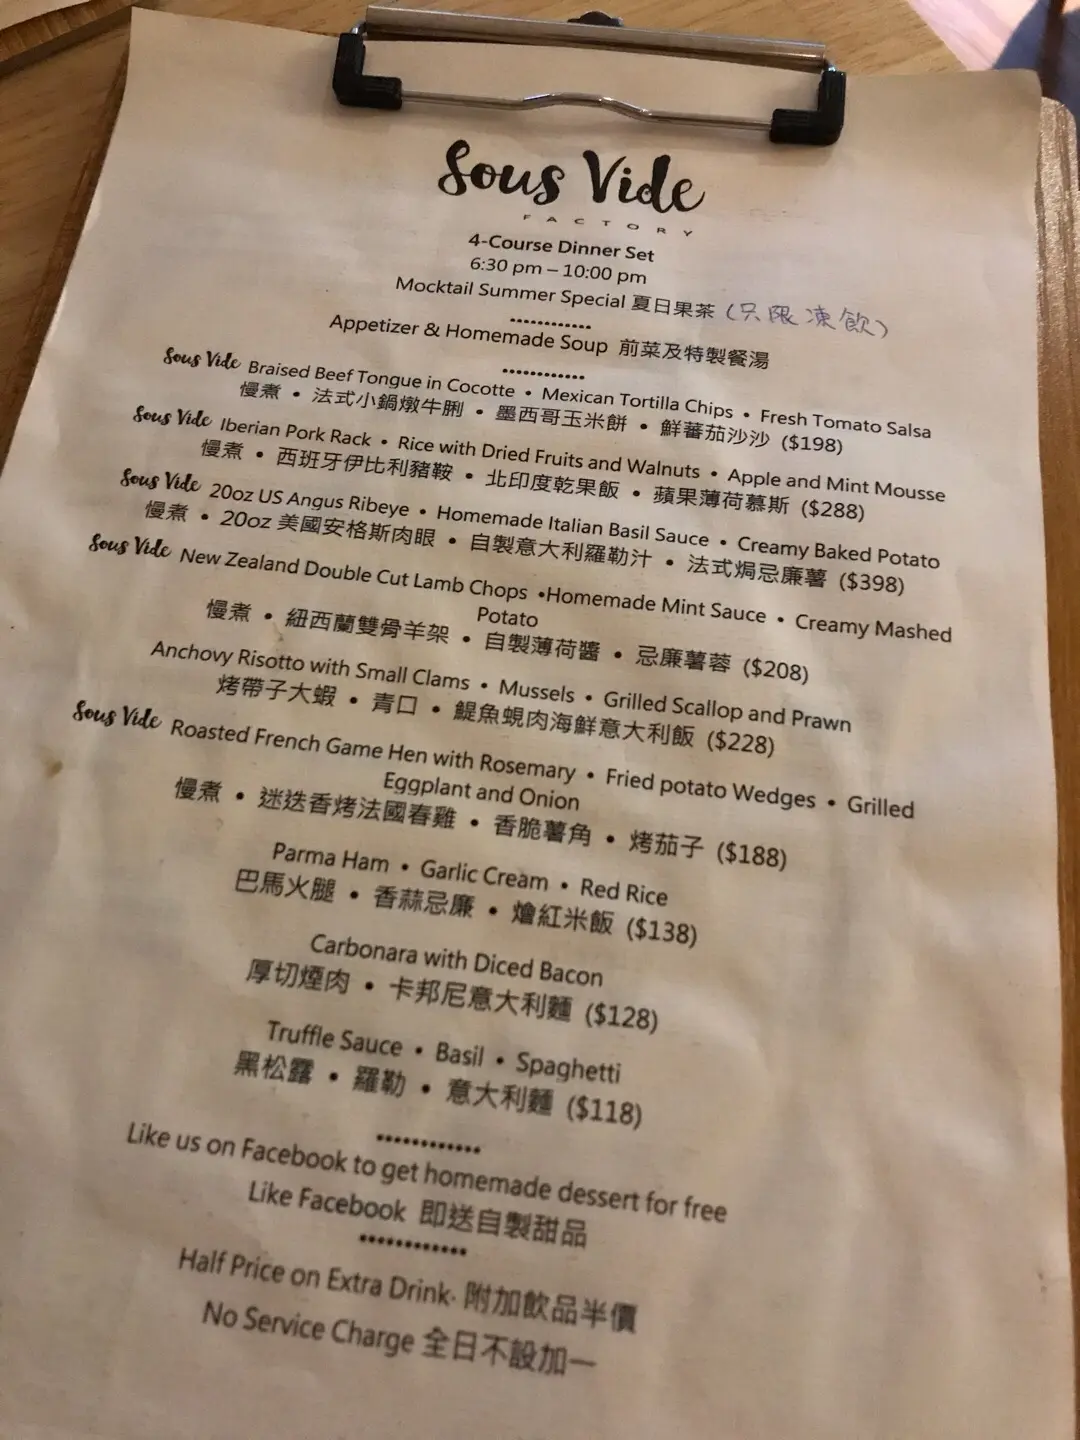 Sous Vide
FACTORY
4-Course Dinner Set
6:30 pm – 10:00 pm
Mocktail Summer Special 夏日果茶 (只限凍飲)
••••••••••••
Appetizer & Homemade Soup 前菜及特製餐湯
••••••••••••
Sous Vide Braised Beef Tongue in Cocotte • Mexican Tortilla Chips • Fresh Tomato Salsa
慢煮 • 法式小鍋燉牛脷 • 墨西哥玉米餅 • 鮮蕃茄沙沙 ($198)
Sous Vide Iberian Pork Rack • Rice with Dried Fruits and Walnuts • Apple and Mint Mousse
慢煮 • 西班牙伊比利豬鞍 • 北印度乾果飯 • 蘋果薄荷慕斯 ($288)
Sous Vide 20oz US Angus Ribeye • Homemade Italian Basil Sauce • Creamy Baked Potato
慢煮 • 20oz 美國安格斯肉眼 • 自製意大利羅勒汁 • 法式焗忌廉薯 ($398)
Sous Vide New Zealand Double Cut Lamb Chops •Homemade Mint Sauce • Creamy Mashed
Potato
慢煮 • 紐西蘭雙骨羊架 • 自製薄荷醬 • 忌廉薯蓉 ($208)
Anchovy Risotto with Small Clams • Mussels • Grilled Scallop and Prawn
烤帶子大蝦 • 青口 • 鯷魚蜆肉海鮮意大利飯 ($228)
Sous Vide Roasted French Game Hen with Rosemary • Fried potato Wedges • Grilled
Eggplant and Onion
慢煮 • 迷迭香烤法國春雞 • 香脆薯角 • 烤茄子 ($188)
Parma Ham • Garlic Cream • Red Rice
巴馬火腿 • 香蒜忌廉 • 燴紅米飯 ($138)
Carbonara with Diced Bacon
厚切煙肉 • 卡邦尼意大利麵 ($128)
Truffle Sauce • Basil • Spaghetti
黑松露 • 羅勒 • 意大利麵 ($118)
••••••••••••
Like us on Facebook to get homemade dessert for free
Like Facebook 即送自製甜品
••••••••••••
Half Price on Extra Drink· 附加飲品半價
No Service Charge 全日不設加一